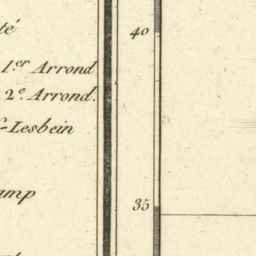 té
40
1.er Arrond
2e. Arrond.
-Lesbein
amp
35